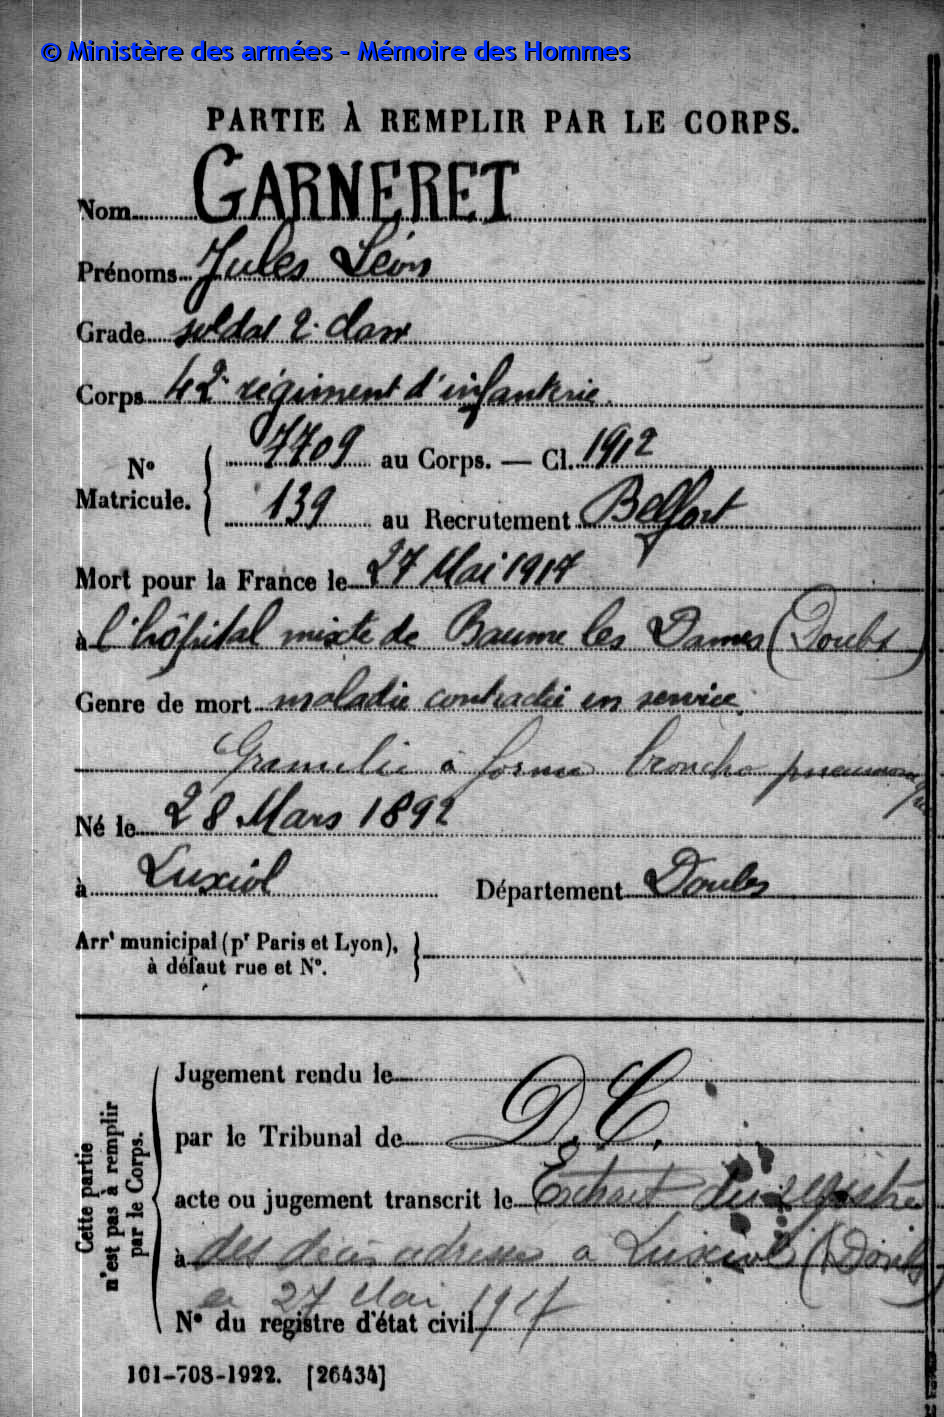 © Ministère des armées - Mémoire des Hommes
PARTIE À REMPLIR PAR LE CORPS.
Nom GARNERET
Prénoms Jules Léon
Grade soldat 2e classe
Corps 42e régiment d'infanterie
N° Matricule. 7709 au Corps. — Cl. 1912
139 au Recrutement Belfort
Mort pour la France le 27 Mai 1917
à l'hôpital mixte de Baume les Dames (Doubs)
Genre de mort maladie contractée en service
Granulie à forme broncho pneumonique
Né le 28 Mars 1892
à Luxiol Département Doubs
Arrt municipal (pr Paris et Lyon),
à défaut rue et N°.
Cette partie
n'est pas à remplir
par le Corps.
Jugement rendu le
par le Tribunal de D. C.
acte ou jugement transcrit le Extrait du registre
à des décès adressé a Luxiol (Doubs)
le 27 Mai 1917
N° du registre d'état civil
101-708-1922. [26434]